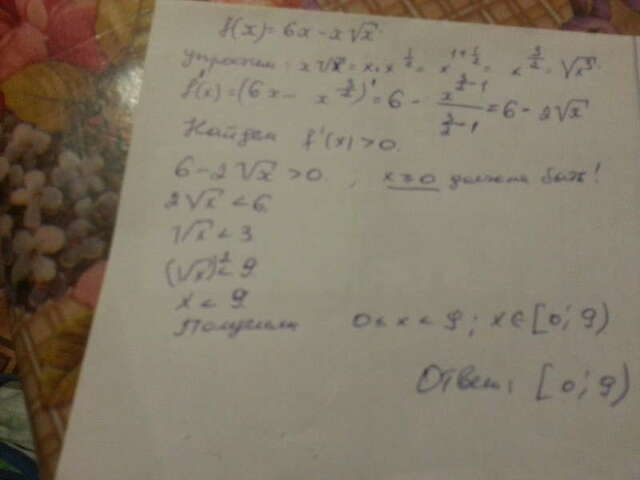 f(x) = 6x - x√x.
упростим: x√x = x · x^{1/2} = x^{1+1/2} = x^{3/2} = √x³.
f'(x) = (6x - x^{3/2})' = 6 - x^{3/2 - 1} / (3/2 - 1) = 6 - 2√x
Найдем f'(x) > 0.
6 - 2√x > 0 ; x ≥ 0 должен быть!
2√x < 6
√x < 3
(√x)² < 9
x < 9
Получим 0 ≤ x < 9 ; x ∈ [0; 9)
Ответ: [0; 9)